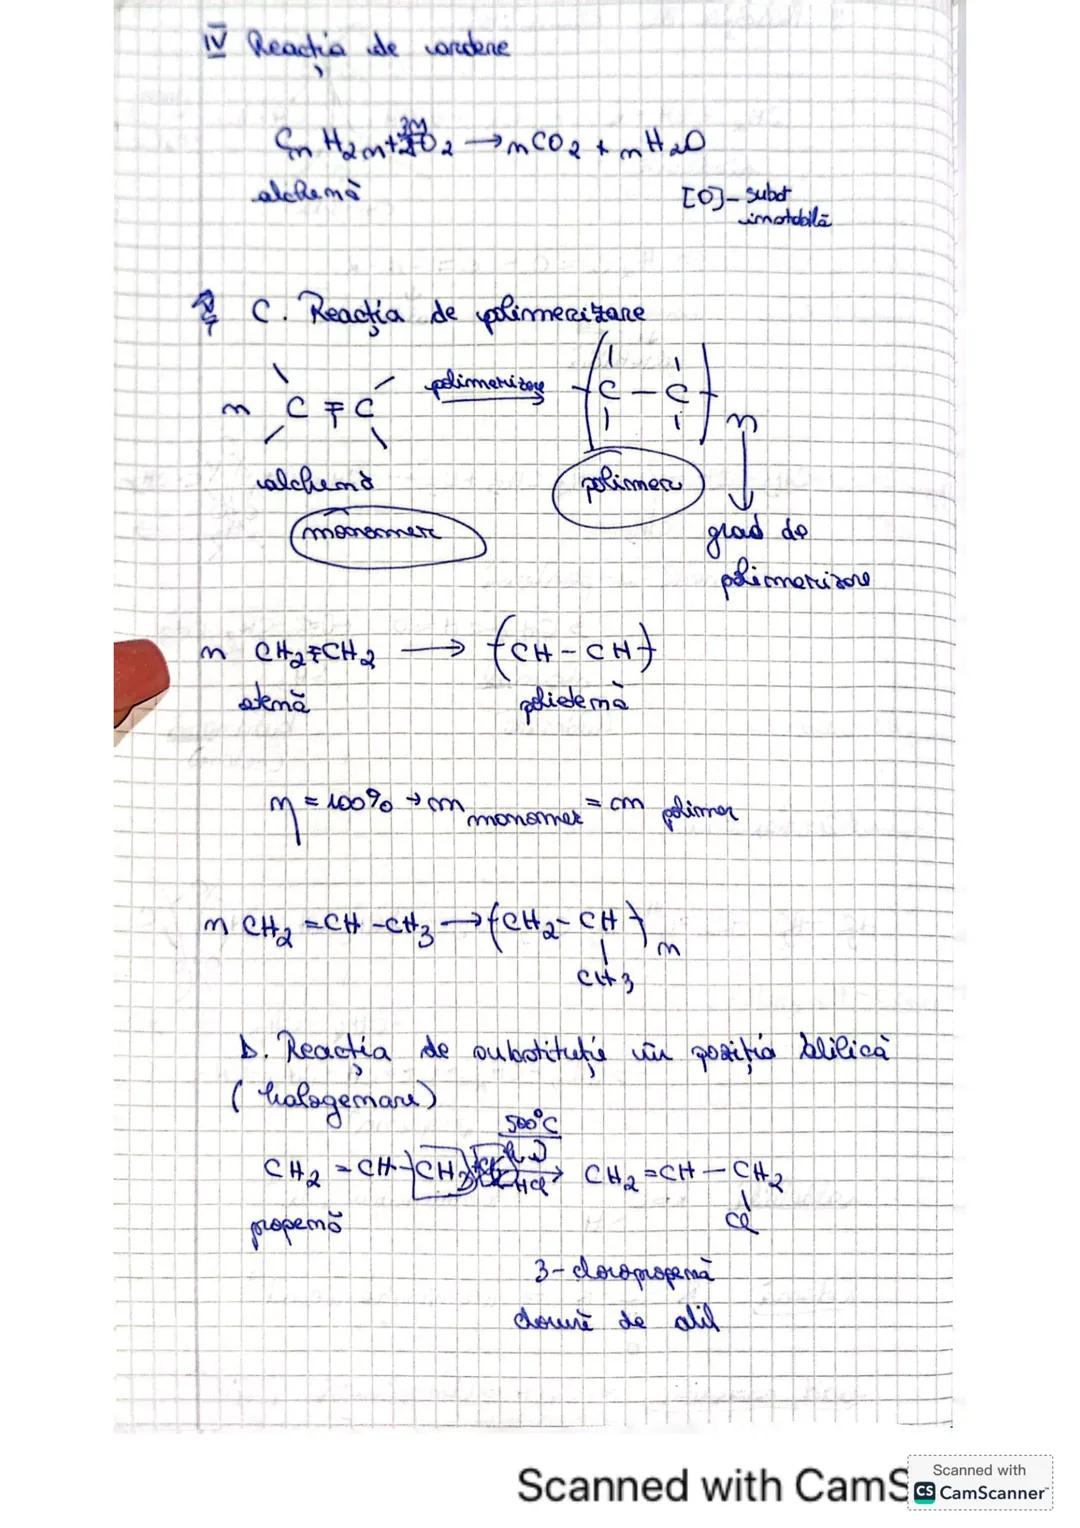 IV Reacția de ardere
CnH2n + 3n/2 O2 → nCO2 + nH2O
alchenă
[O] - subst
imotabilă
C. Reacția de polimerizare
n C = C polimerizare → ( C - C ) n
alchenă
polimer
monomer
grad de
polimerizare
n CH2=CH2 → (CH - CH)
etenă
polietenă
η = 100% → m monomer = m polimer
n CH2 = CH - CH3 → (CH2 - CH)n
CH3
D. Reacția de substituție în poziția alilică
(halogenare)
500°C
CH2 = CH - CH3 → CH2 = CH - CH2
-HCl
Cl
propenă
3-cloropropenă
clorură de alil
Scanned with CamS
Scanned with
CS CamScanner